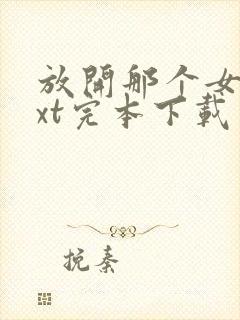 放開那个女
xt完本下載
挽秦